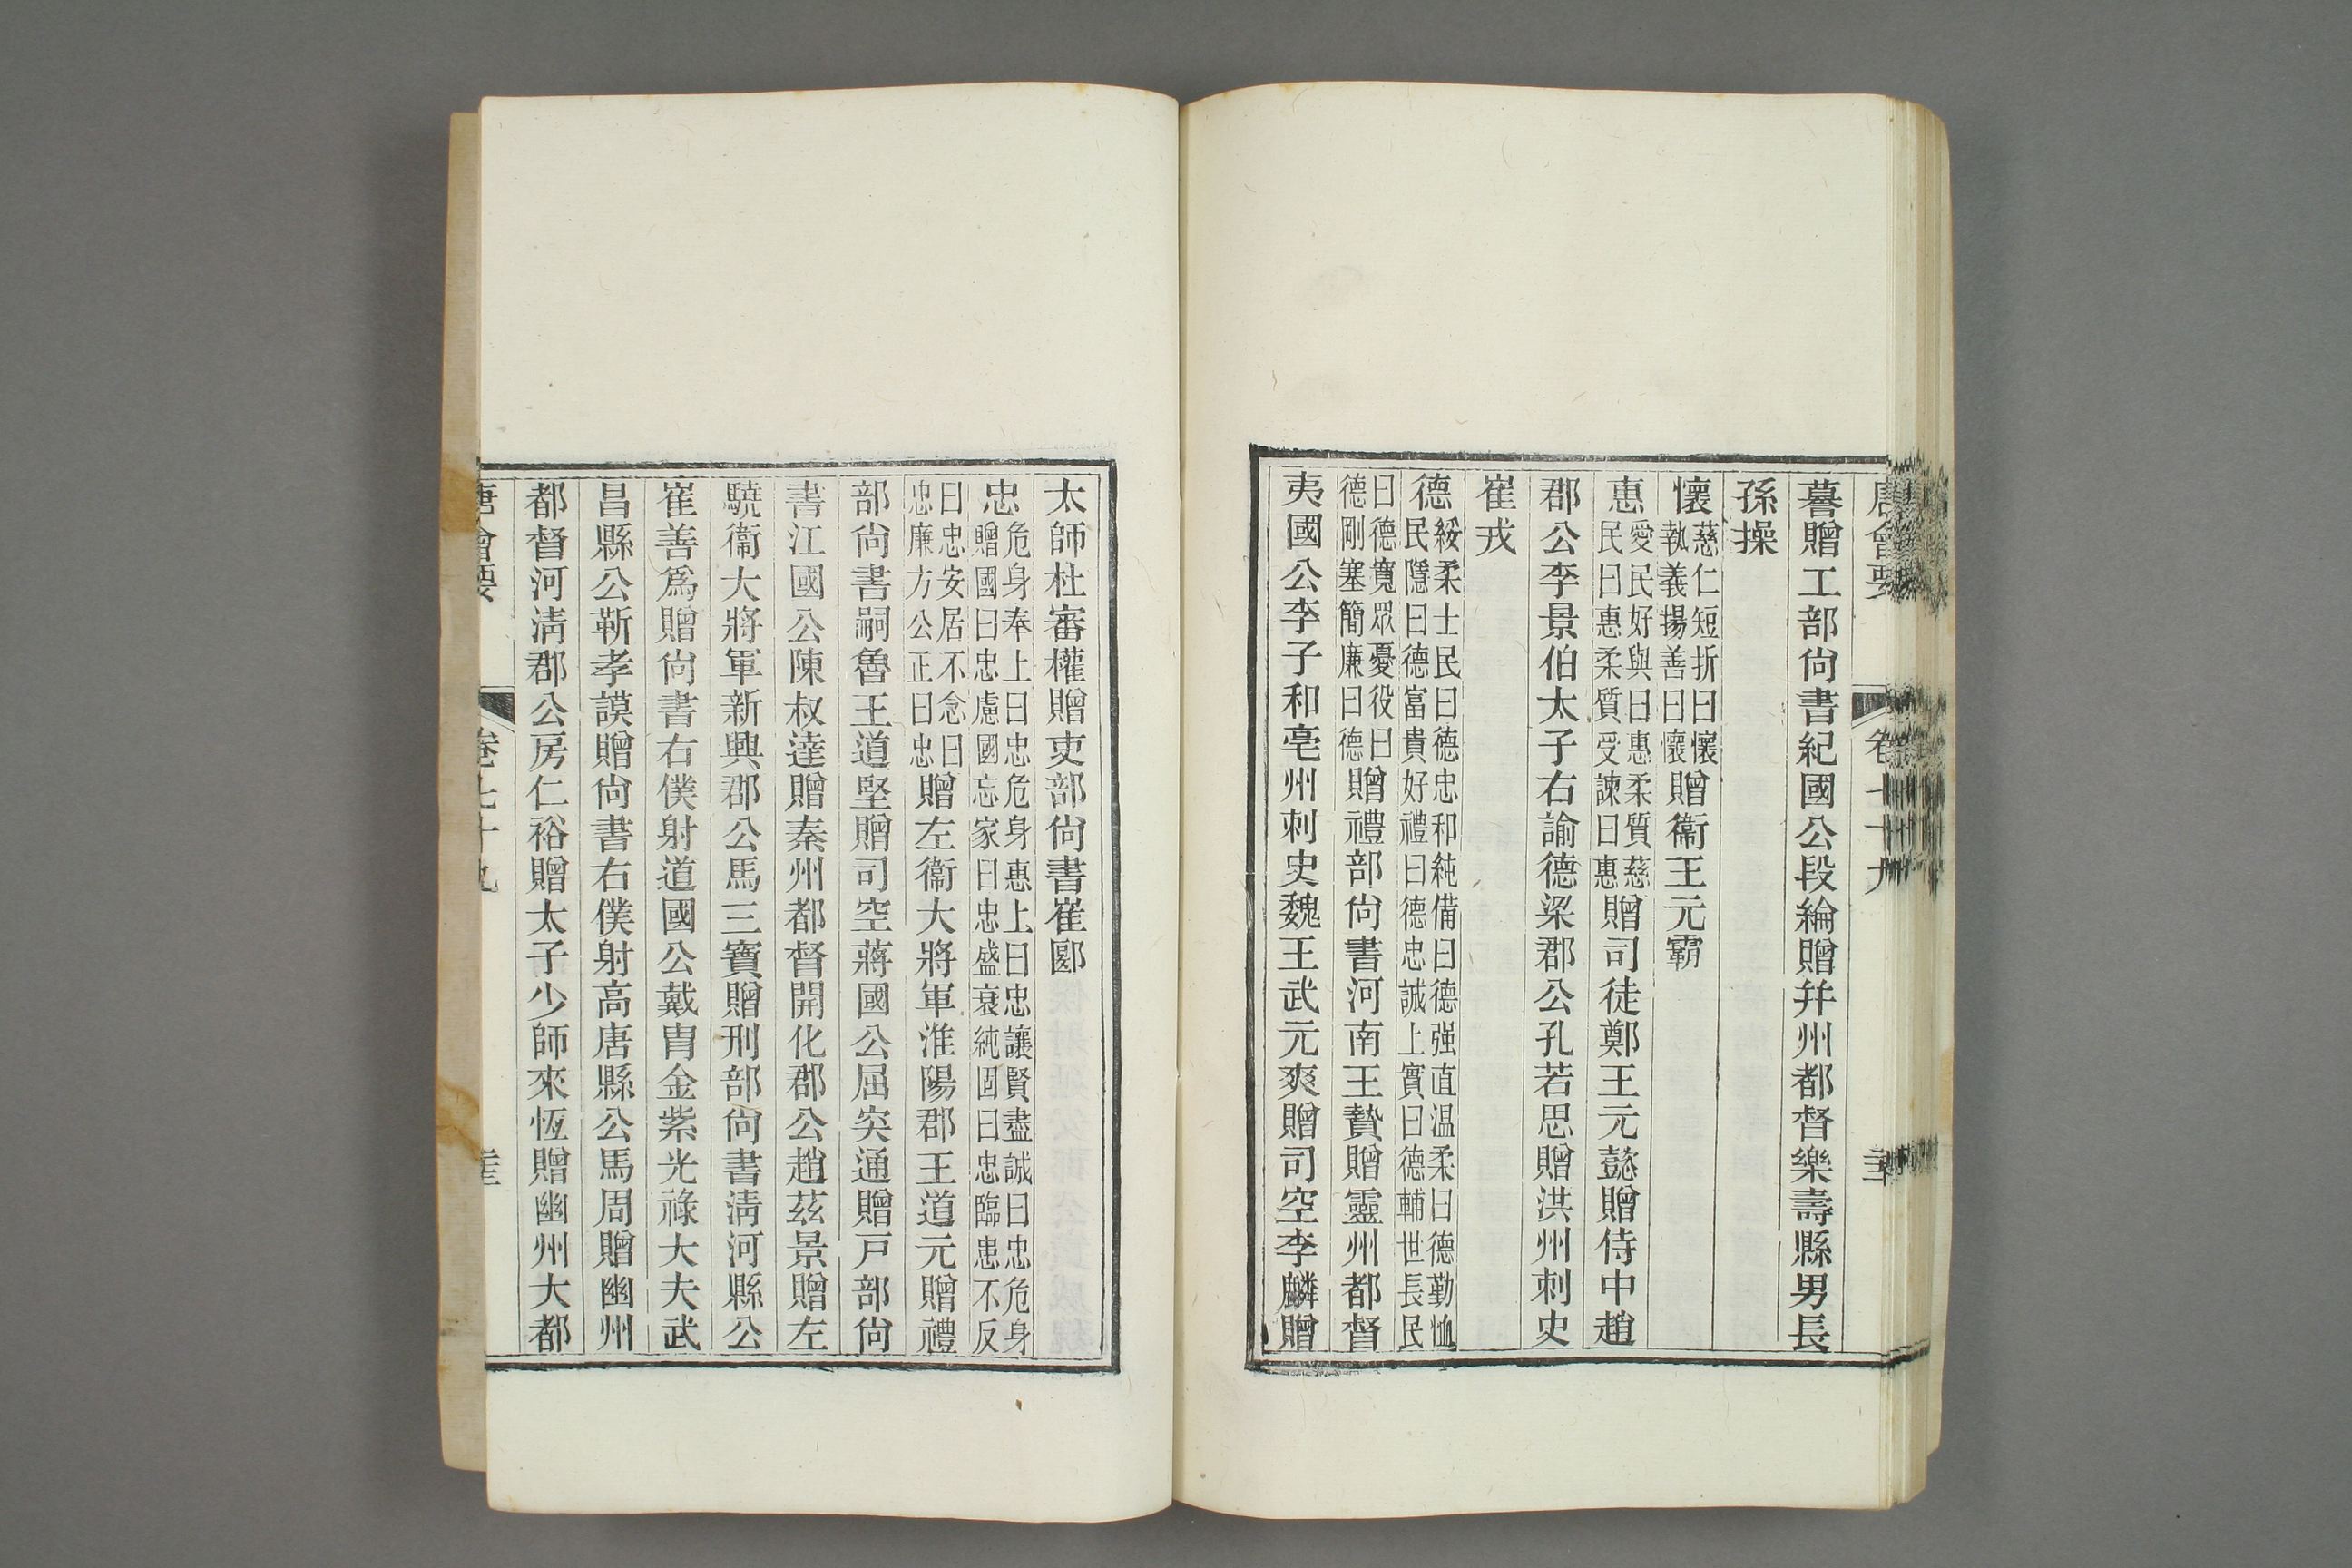 唐會要 卷七十九
謩贈工部尙書紀國公段綸贈幷州都督樂壽縣男長
孫操
懷慈仁短折曰懷執義揚善曰懷贈衞王元霸
惠愛民好與曰惠柔質慈民曰惠柔質受諫曰惠贈司徒鄭王元懿贈侍中趙
郡公李景伯太子右諭德梁郡公孔若思贈洪州刺史
崔戎
德綏柔士民曰德忠和純備曰德强直温柔曰德勤恤民隱曰德富貴好禮曰德忠誠上實曰德輔世長民
曰德寬眾憂役曰德剛塞簡廉曰德贈禮部尙書河南王贄贈靈州都督
夷國公李子和亳州刺史魏王武元爽贈司空李麟贈
太師杜審權贈吏部尙書崔郾
忠危身奉上曰忠危身惠上曰忠讓賢盡誠曰忠危身贈國曰忠慮國忘家曰忠盛衰純固曰忠臨患不反
曰忠安居不念曰忠廉方公正曰忠贈左衞大將軍淮陽郡王道元贈禮
部尙書嗣魯王道堅贈司空蔣國公屈突通贈戸部尙
書江國公陳叔達贈秦州都督開化郡公趙茲景贈左
驍衞大將軍新興郡公馬三寶贈刑部尙書淸河縣公
崔善爲贈尙書右僕射道國公戴胄金紫光祿大夫武
昌縣公靳孝謨贈尙書右僕射高唐縣公馬周贈幽州
都督河淸郡公房仁裕贈太子少師來恆贈幽州大都
唐會要 卷七十九